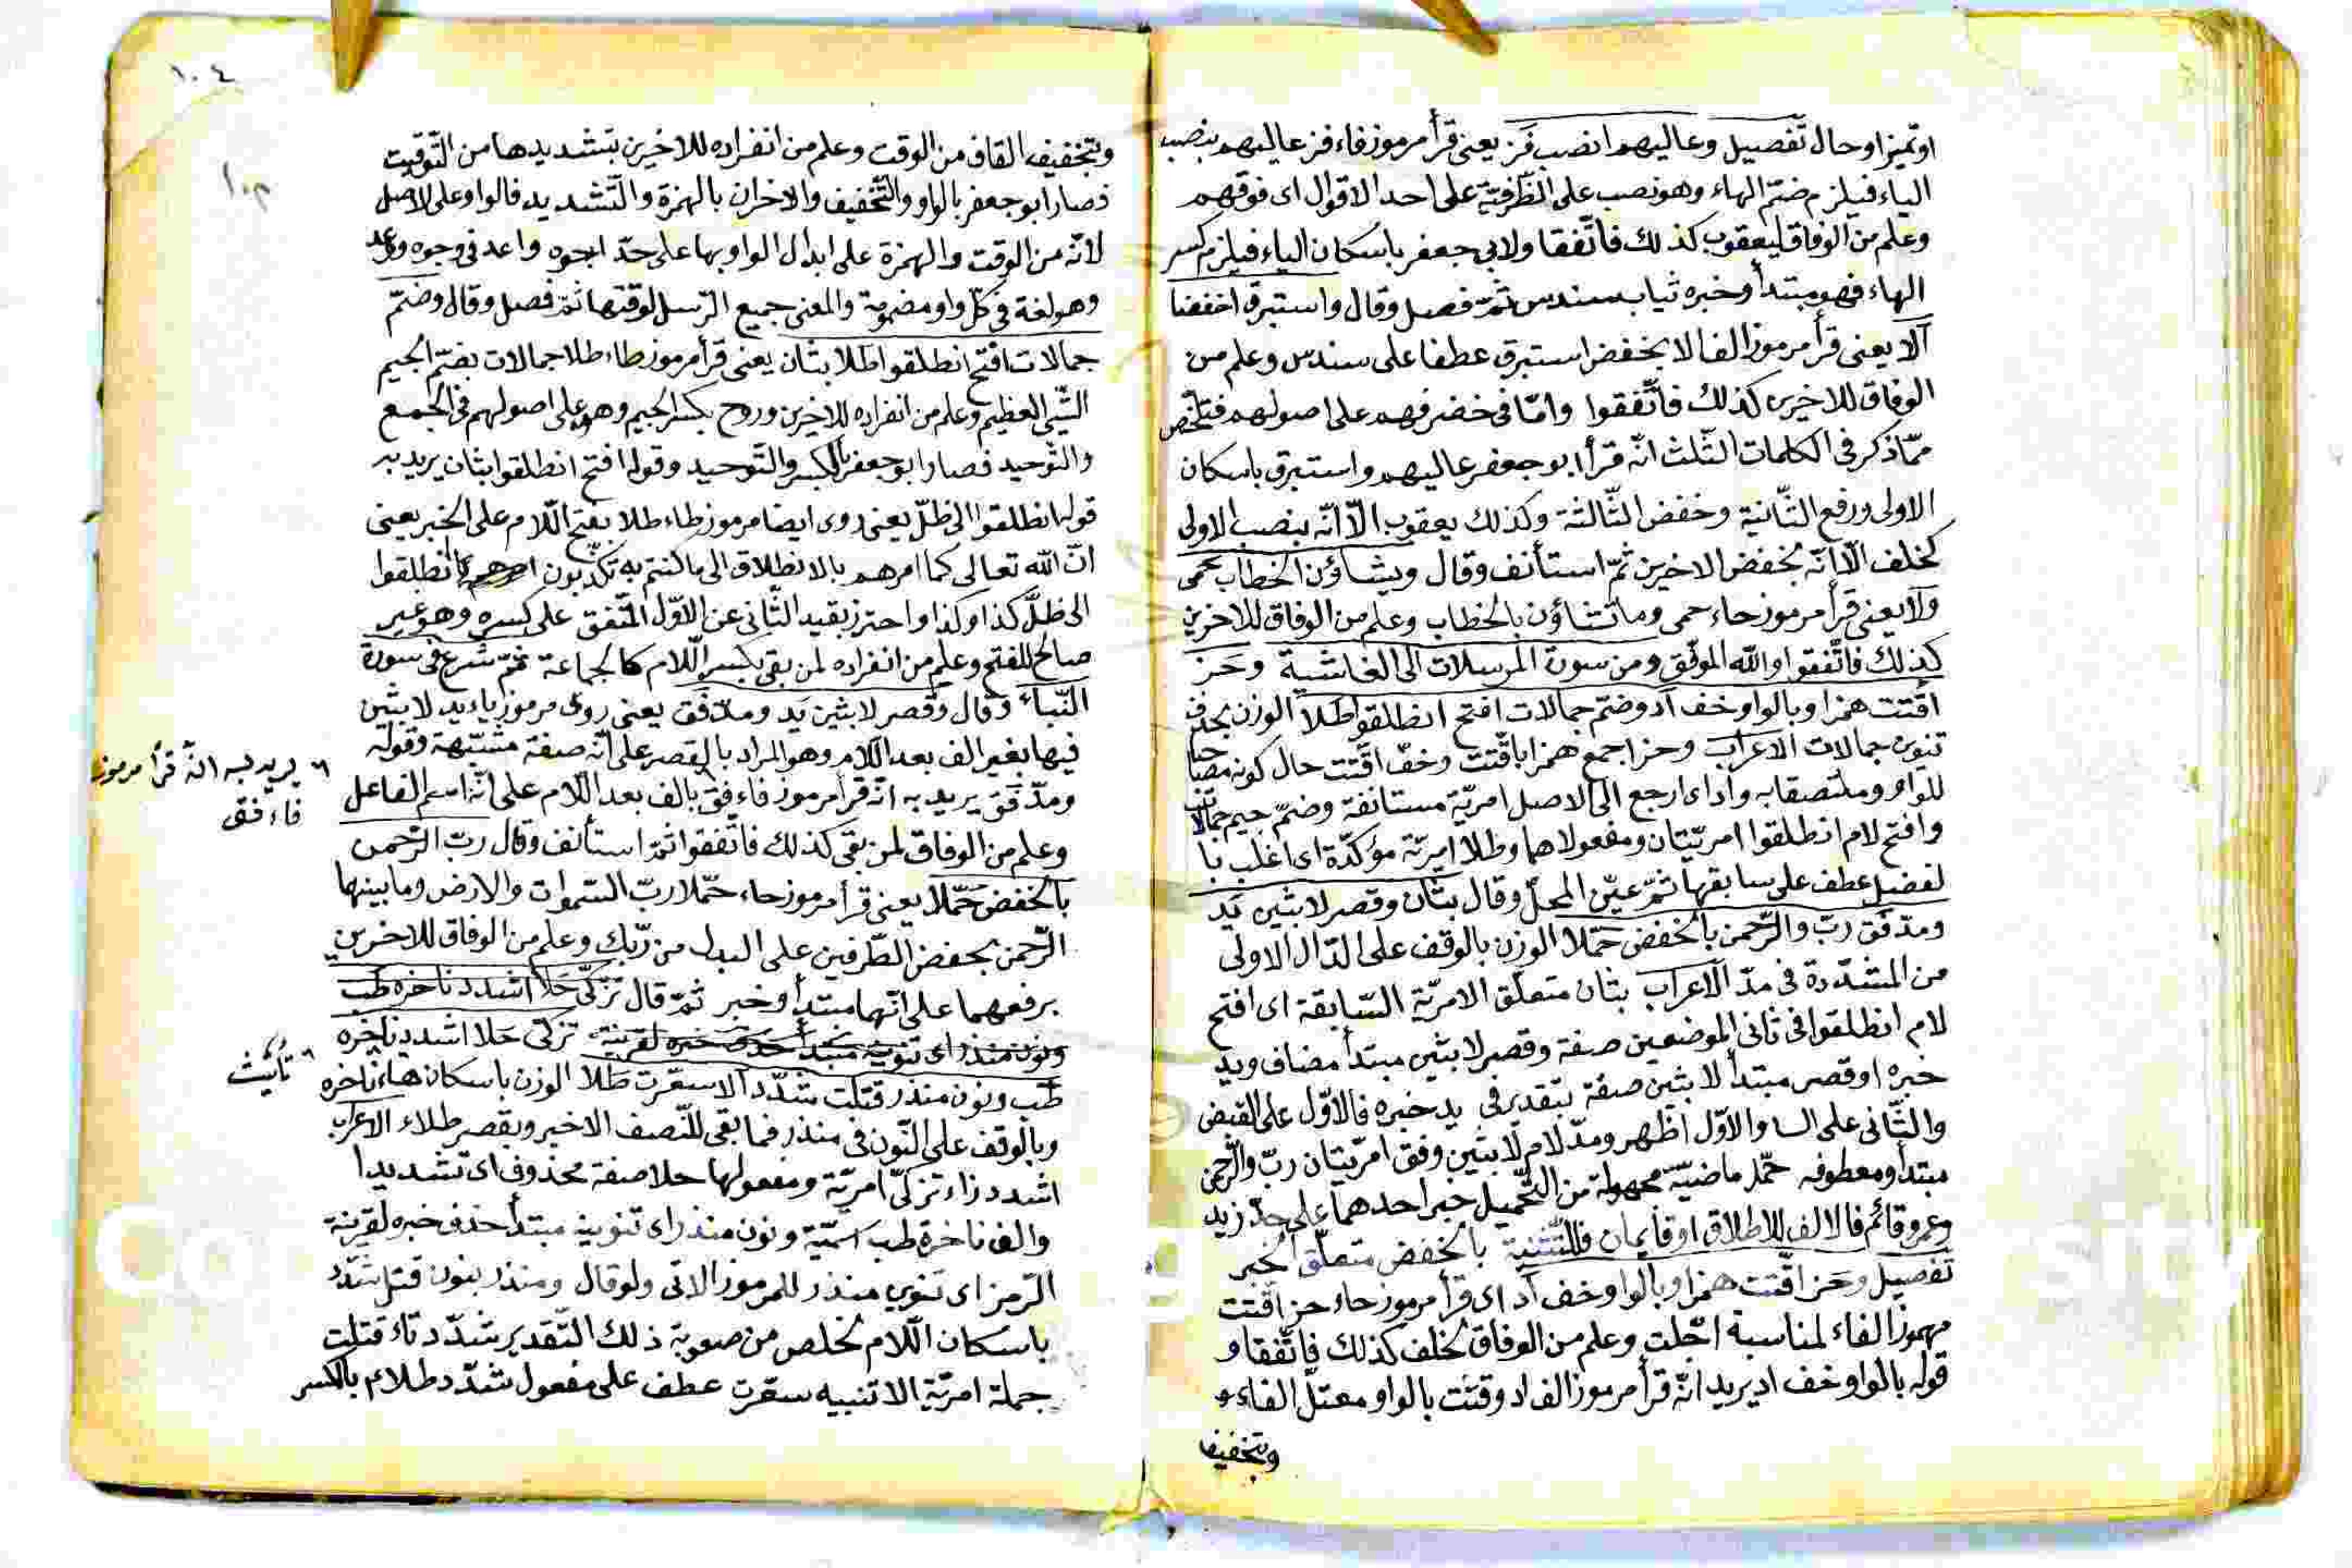 او تميزا وحال تفصيل وعاليهم انصب فز يعنى قرأ مرموز فاء فز عاليهم بنصب
الياء فيلزم ضمّ الهاء وهو نصب على الظّرفيّة على احد الاقوال اى فوقهم
وعلم من الوفاق ليعقوب كذلك فاتّفقا ولابى جعفر باسكان الياء فيلزم كسر
الهاء فهو مبتدأ وخبره ثياب سندس ثمّ فصل وقال واستبرق اخفضا
ألا يعنى قرأ مرموز الف الا بخفض استبرق عطفا على سندس وعلم من
الوفاق للاخرين كذلك فاتّفقوا وامّا فى خضر فهم على اصولهم فتلخّص
ممّا ذكر فى الكلمات الثّلث انّه قرأ ابو جعفر عاليهم واستبرق باسكان
الاولى ورفع الثّانية وخفض الثّالثة وكذلك يعقوب الّا انّه بنصب الاولى
كخلف الّا انّه بخفض الاخرين ثمّ استأنف وقال ويشاؤن الخطاب حمى
ولا يعنى قرأ مرموز حاء حمى وما تشاؤن بالخطاب وعلم من الوفاق للاخرين
كذلك فاتّفقوا والله الموفّق ومن سورة المرسلات الى الغاشية وحز
اقّتت همزا وبالواو خف أد وضمّ جمالات افتح انطلقوا طلا الوزن بحذف
تنوين جمالات الاعراب وحز اجمع همزا باقّتت وخفّ اقّتت حال كونه مصاحبا
للواو وملتصقا به وأد اى ارجع الى الاصل امريّة مستانفة وضمّ جيم جمالات
وافتح لام انطلقوا امريّتان ومفعولاهما وطلا امريّة مؤكّدة اى اغلب با
لفضل عطف على سابقها ثمّ عيّن المحلّ وقال بثان وقصر لابثين يد
ومدّ فق ربّ والرّحمن بالخفض حمّلا الوزن بالوقف على الدّال الاولى
من المشدّدة فى مدّ الاعراب بثان متعلّق الامريّة السّابقة اى افتح
لام انطلقوا فى ثانى الموضعين صفة وقصر لابثين مبتدأ مضاف ويد
خبره او قصر مبتدأ لابثين صفة بتقدير فى يد خبره فالاوّل على القبض
والثّانى على السا والاوّل اظهر ومدّ لام لابثين وفق امريّتان ربّ والرّحمن
مبتدأ ومعطوفه حمّلا ماضيّة مجهولة من التّحميل خبر احدهما على حدّ زيد
وعمرو قائم فالالف للاطلاق او قايمان فللتّثنية بالخفض متعلّق الخبر
تفصيل وحز اقّتت همزا وبالواو خف أد اى قرأ مرموز حاء حز اقّتت
مهموز الفاء لمناسبة اجّلت وعلم من الوفاق لخلف كذلك فاتّفقا و
قوله بالواو خف اد يريد انّه قرأ مرموز الف اد وقتت بالواو معتلّ الفاء و
وتخفيف
١٠٤
وتخفيف القاف من الوقت وعلم من انفراده للاخرين بتشديدها من التّوقيت
فصار ابو جعفر بالواو والتّخفيف والاخران بالهمزة والتّشديد فالواو على الاصل
لانّه من الوقت والهمزة على ابدال الواو بها على حدّ اجوه واعد فى وجوه ووعد
وهو لغة فى كلّ واو مضمومة والمعنى جميع الرّسل لوقتها ثمّ فصل وقال وضمّ
جمالات افتح انطلقوا طلا بثان يعنى قرأ مرموز طاء طلا جمالات بضمّ الجيم
الشّئ العظيم وعلم من انفراده للاخرين وروح بكسر الجيم وهم على اصولهم فى الجمع
والتّوحيد فصار ابو جعفر بالكسر والتّوحيد وقوله افتح انطلقوا بثان يريد به
قوله انطلقوا الى ظلّ يعنى روى ايضا مرموز طاء طلا بفتح اللّام على الخبر يعنى
انّ الله تعالى كما امرهم بالانطلاق الى ما كنتم به تكذّبون انطلقوا
الى ظلّ كذا وكذا واحترز بقيد الثّانى عن الاوّل المتّفق على كسره وهو غير
صالح للفتح وعلم من انفراده لمن بقى بكسر اللّام كالجماعة ثمّ شرع فى سورة
النّبأ وقال وقصر لابثين يد ومدّ فق يعنى روى مرموز ياء يد لابثين
فيها بغير الف بعد اللّام وهو المراد بالقصر على انّه صفة مشبّهة وقوله
ومدّ فق يريد به انّه قرأ مرموز فاء فق بالف بعد اللّام على انّه اسم الفاعل
يريد به انّه قرأ مرموز
فاء فق
وعلم من الوفاق لمن بقى كذلك فاتّفقوا ثمّ استأنف وقال ربّ الرّحمن
بالخفض حمّلا يعنى قرأ مرموز حاء حمّلا ربّ السّموات والارض وما بينهما
الرّحمن بخفض الطّرفين على البدل من ربّك وعلم من الوفاق للاخرين
برفعهما على انّهما مبتدأ وخبر ثمّ قال تزكّى حلا اشدد ناخره طب
ونون منذر اى تنوينه مبتدأ حذف خبره لقرينة تزكّى حلا اشدد ناخره
طب ونون منذر قتلت شدّد الا سعّرت طلا الوزن باسكان هاء ناخره
تأنيث
وبالوقف على النّون فى منذر فما بقى للنّصف الاخير وبقصر طلاء الاعراب
اشدد زاء تزكّى امريّة ومفعولها حلا صفة محذوف اى تشديدا
والف ناخرة طب اسميّة ونون منذر اى تنوينه مبتدأ حذف خبره لقرينة
الرّمز اى تنوين منذر للمرموز الاتى ولو قال ومنذر بنون قتل شدّد
باسكان اللّام لخلص من صعوبة ذلك التّقدير شدّد تاء قتلت
جملة امريّة الا تنبيه سعّرت عطف على مفعول شدّد طلاء بالكسر